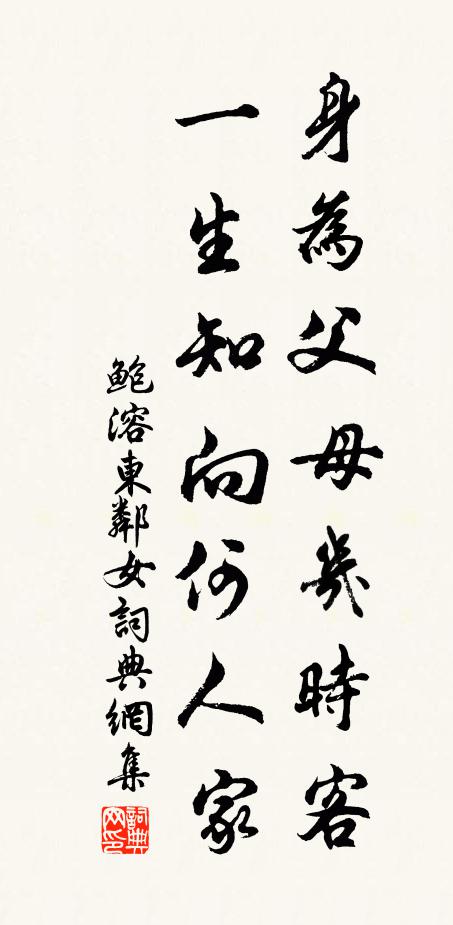 身為父母幾時客
一生知向何人家
鮑溶東鄰女詞典網集
詞典網印